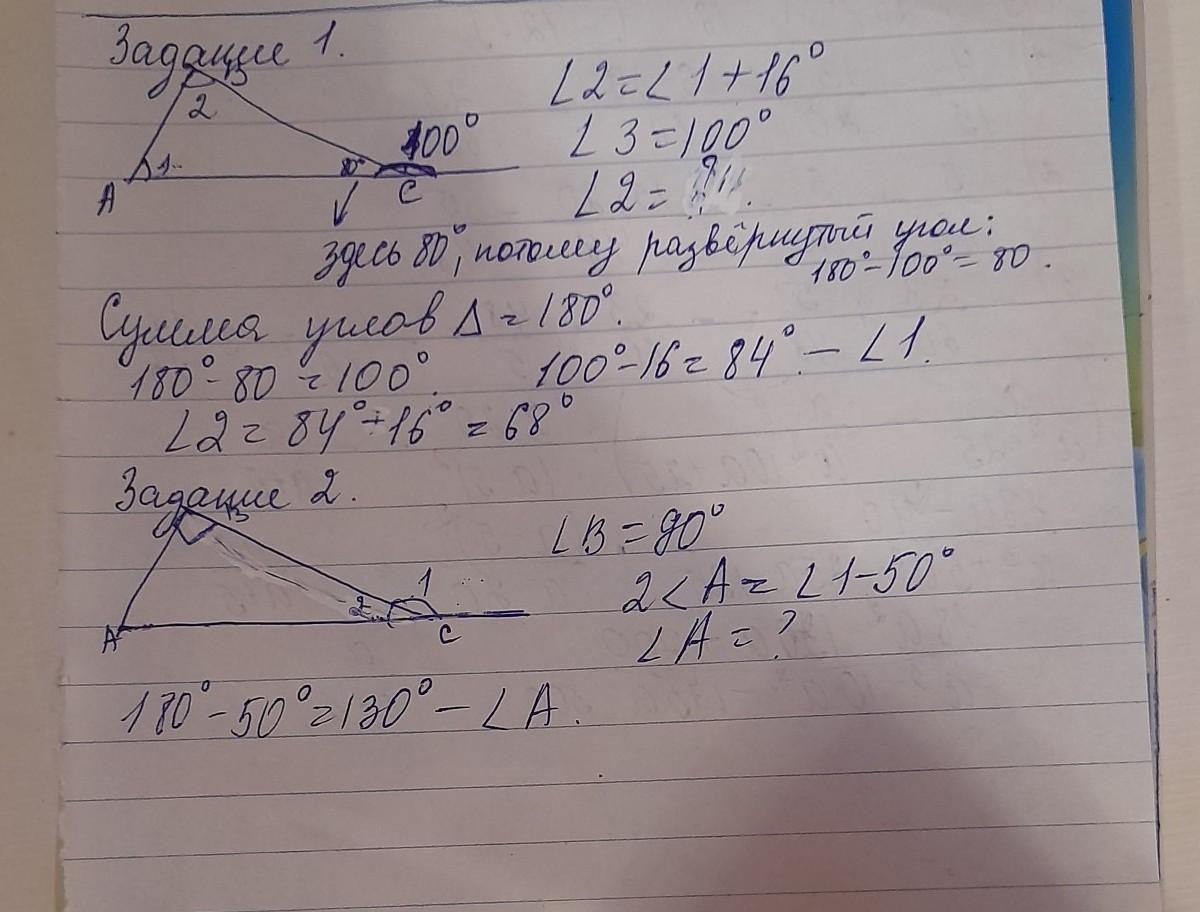 Задание 1.
B
2
∠2 = ∠1 + 16°
100°
∠3 = 100°
1
80°
A
C
∠2 = ?
здесь 80°, потому развёрнутый угол:
180° - 100° = 80.
Сумма углов Δ = 180°.
180° - 80 = 100°. 100° - 16 = 84° - ∠1.
∠2 = 84° - 16° = 68°
Задание 2.
B
∠B = 90°
1
2
2∠A = ∠1 - 50°
A
C
∠A = ?
180° - 50° = 130° - ∠A.